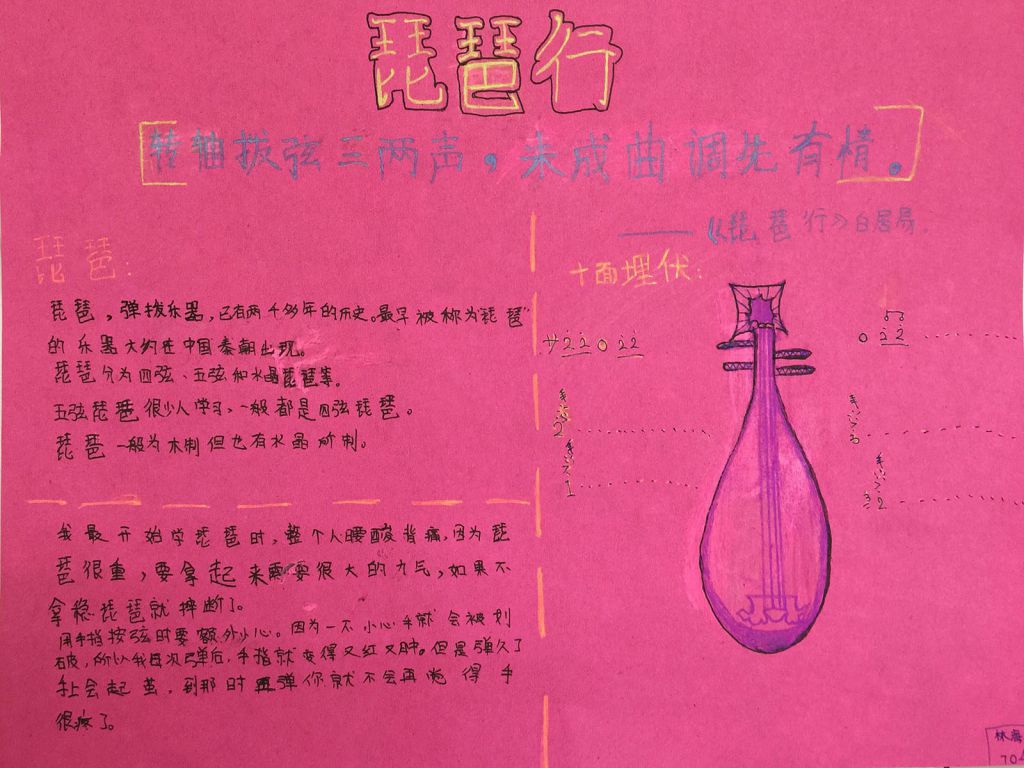 琵琶行
转轴拨弦三两声，未成曲调先有情。
——《琵琶行》白居易.
琵琶：
琵琶，弹拨乐器，已有两千多年的历史。最早被称为"琵琶"
的乐器大约在中国秦朝出现。
琵琶分为四弦、五弦和水晶琵琶等。
五弦琵琶很少人学习、一般都是四弦琵琶。
琵琶一般为木制但也有水晶所制。
我最开始学琵琶时，整个人腰酸背痛，因为琵
琶很重，要拿起来需要很大的力气，如果不
拿稳琵琶就摔断了。
用手指按弦时要额外小心。因为一不小心手就会被划
破，所以我每次弹后，手指就变得又红又肿。但是弹久了
手上会起茧，到那时再弹你就不会再觉得手
很疼了。
十面埋伏：
サ 2 2 0 2 2
0 2 2
2
1
3
2
林海
704